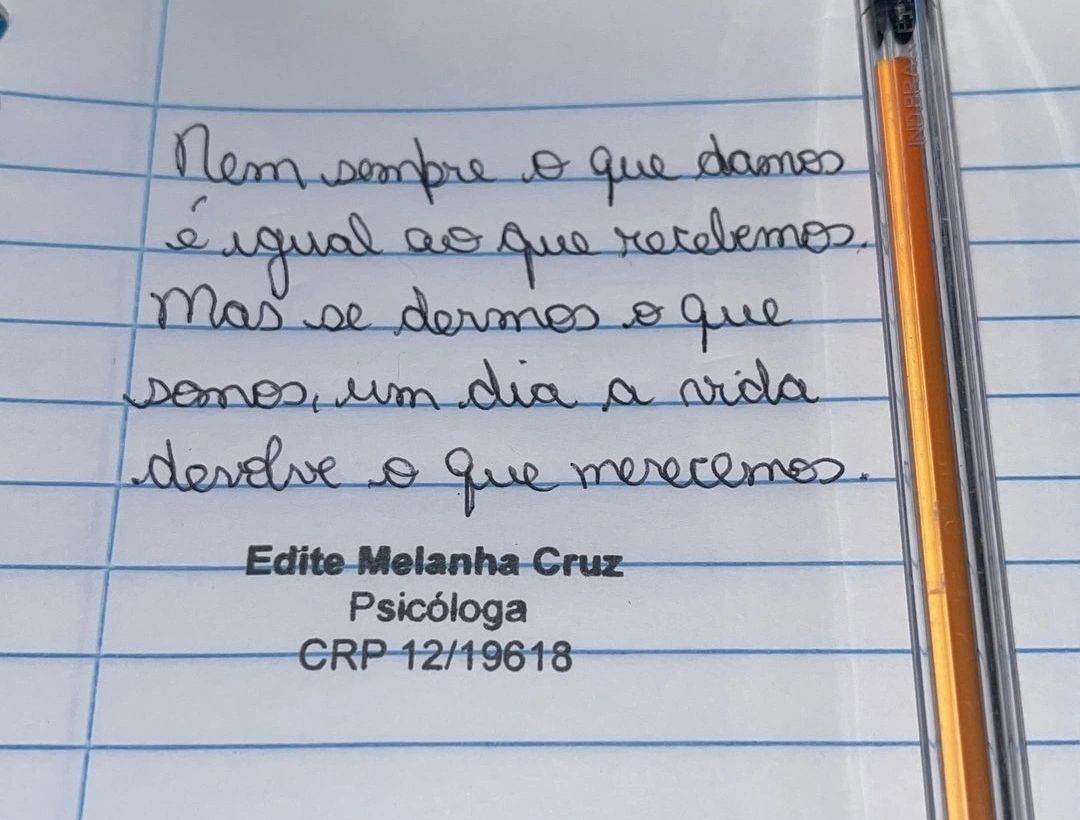 Nem sempre o que damos
é igual ao que recebemos.
Mas se dermos o que
somos, um dia a vida
devolve o que merecemos.
Edite Melanha Cruz
Psicóloga
CRP 12/19618